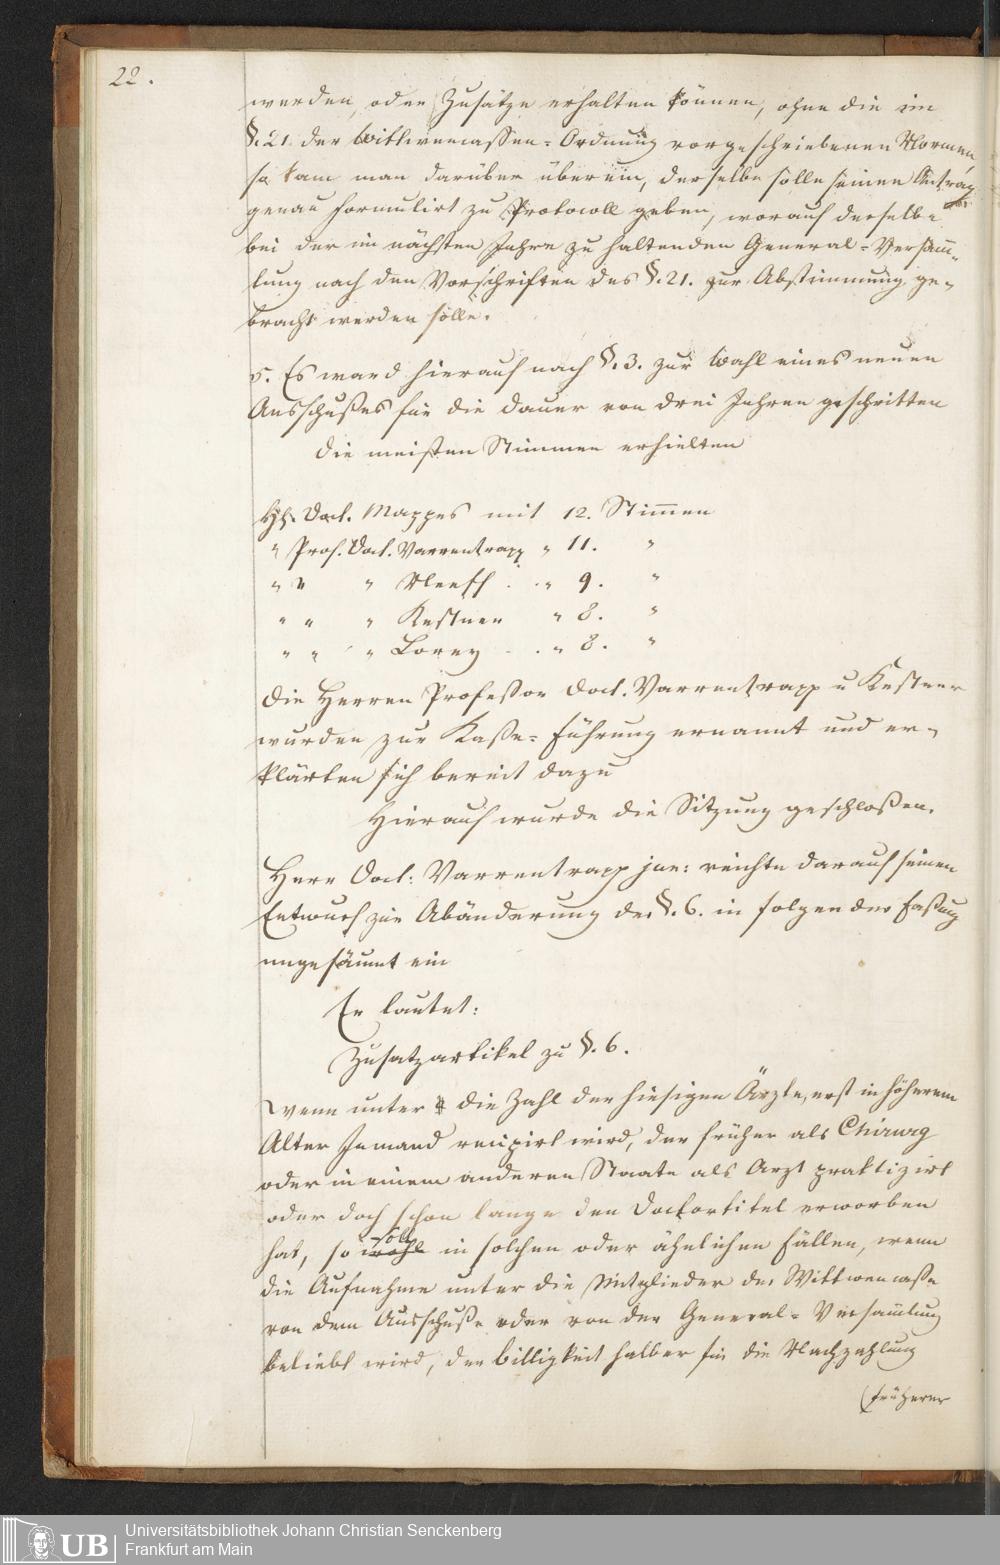 22.
werden, oder Zusätze erhalten können, ohne die im
§. 21. der Wittwencassen-Ordnung vorgeschriebenen Normen
so kam man darüber überein, derselbe solle seinen Antrag
genau formulirt zu Protocoll geben, worauf derselbe
bei der im nächsten Jahre zu haltenden General-Versam̄-
lung nach den Vorschriften des §. 21. zur Abstimmung ge-
bracht werden solle.
5. Es ward hierauf nach §. 3. zur Wahl eines neuen
Ausschußes für die Dauer von drei Jahren geschritten
Die meisten Stimmen erhielten
HH. Doct. Mappes mit 12. Stim̄en
" Prof. Doct. Varrentrapp " 11. "
" " " Neeff . . " 9. "
" " " Kestner " 8. "
" " " Lorey . . " 8. "
Die Herren Professor Doct. Varrentrapp u Kestner
wurden zur Kasse-Führung ernannt und er-
klärten sich bereit dazu
Hierauf wurde die Sitzung geschloßen.
Herr Doct: Varrentrapp jun: reichte darauf seinen
Entwurf zur Abänderung des §. 6. in folgender Faßung
ungesäumt ein
Er lautet:
Zusatzartikel zu §. 6.
Wenn unter die Zahl der hiesigen Ärzte, erst in höherem
Alter Jemand recipirt wird, der früher als Chirurg
oder in einem anderen Staate als Arzt praktizirt
oder doch schon lange den Doctortitel erworben
hat, so wohl soll in solchen oder ähnlichen Fällen, wenn
die Aufnahme unter die Mitglieder der Wittwencasse
von dem Ausschuße oder von der General-Versam̄lung
beliebt wird, der Billigkeit halber für die Nachzahlung
(früherer
UB
Universitätsbibliothek Johann Christian Senckenberg
Frankfurt am Main